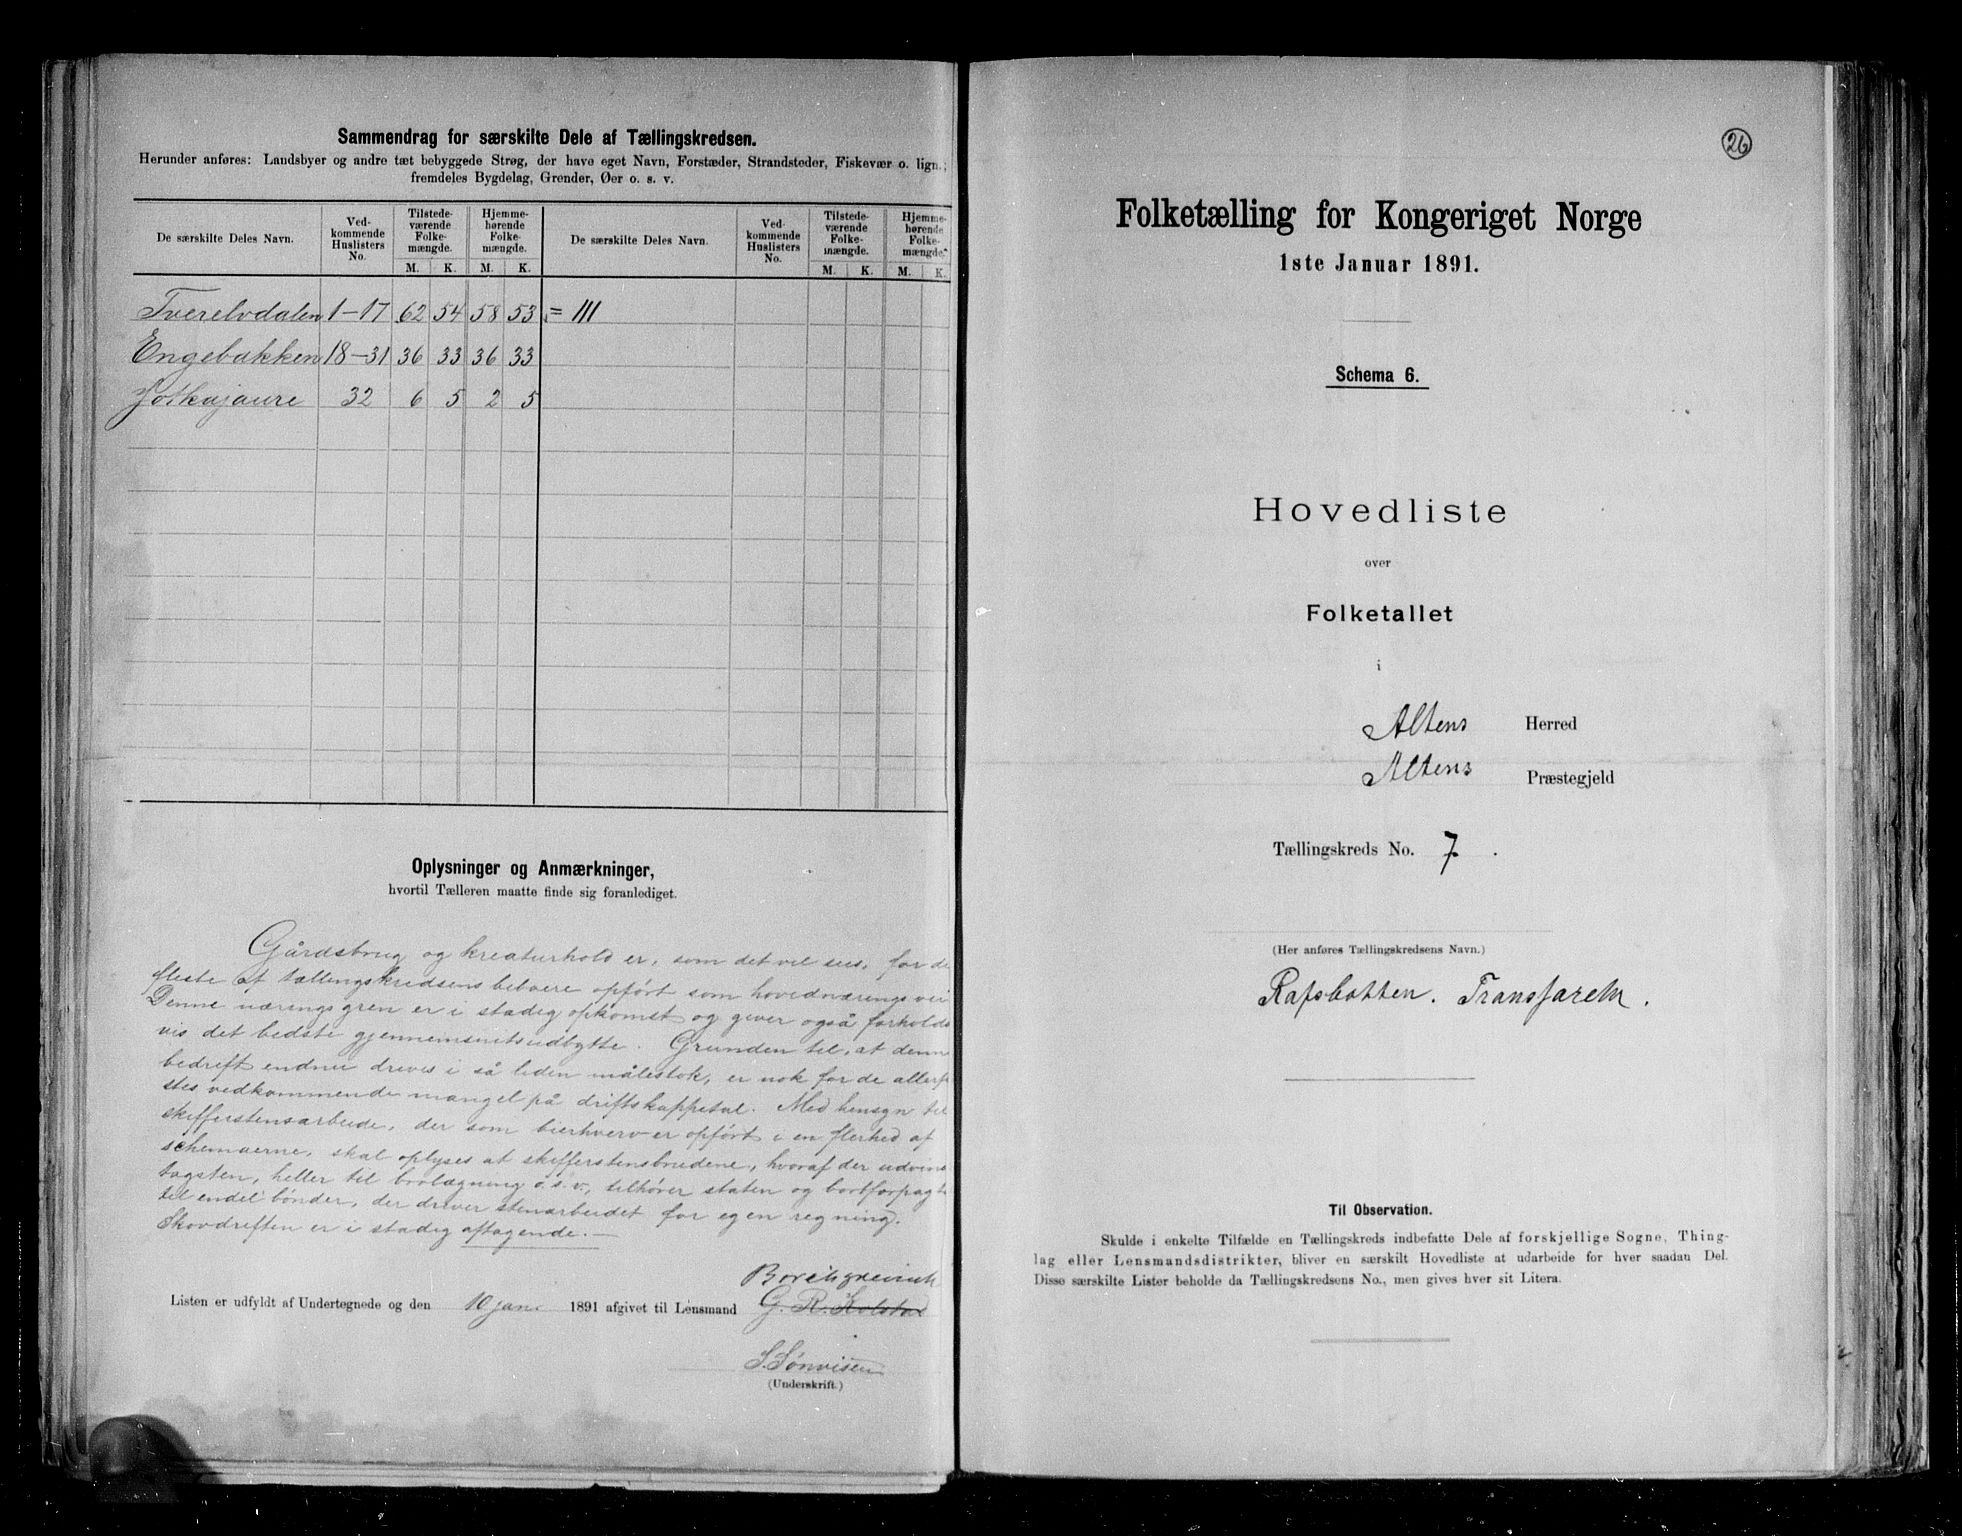 Sammendrag for særskilte Dele af Tællingskredsen.
Herunder anføres: Landsbyer og andre tæt bebyggede Strøg, der have eget Navn, Forstæder, Strandsteder, Fiskevær o. lign.;
fremdeles Bygdelag, Grender, Øer o. s. v.
De særskilte Deles Navn. Ved-kommende Huslisters No. Tilstede-værende Folke-mængde. Hjemme-hørende Folke-mængde. De særskilte Deles Navn. Ved-kommende Huslisters No. Tilstede-værende Folke-mængde. Hjemme-hørende Folke-mængde.
M. K. M. K. M. K. M. K.
Tverelvdalen 1-17 62 54 58 53 = 111
Engebakken 18-31 36 33 36 33
Jotkajaure 32 6 5 2 5
Oplysninger og Anmærkninger,
hvortil Tælleren maatte finde sig foranlediget.
Gårdsbrug og kreaturhold er, som det vil sees, for de
fleste af tællingskredsens beboere opført som hovednærings vei
Denne næringsgren er i stadig opkomst og giver også forholds
vis det bedste gjennemsnitsudbytte. Grunden til, at denne
bedrift endnu drives i så liden målestok, er nok for de allerfle
stes vedkommende mangel på driftskappetal. Med hensyn til
skifferstensarbeide, der som bierhverv er opført i en flerhed af
schemaerne, skal oplyses at skifferstensbrudene, hvoraf der udvin
tagsten, heller til brolægning o.s.v., tilhører staten og bortforpagt
til endel bønder, der driver stenarbeidet for egen regning.
Skovdriften er i stadig aftagende. —
Borchgrevink
Listen er udfyldt af Undertegnede og den 10 jan. 1891 afgivet til Lensmand G. R. Kolstad
S. Sønvisen
(Underskrift.)
26
Folketælling for Kongeriget Norge
1ste Januar 1891.
Schema 6.
Hovedliste
over
Folketallet
i
Altens Herred
Altens Præstegjeld
Tællingskreds No. 7.
(Her anføres Tællingskredsens Navn.)
Rafsbotten. Transfarelv.
Til Observation.
Skulde i enkelte Tilfælde en Tællingskreds indbefatte Dele af forskjellige Sogne, Thing-
lag eller Lensmandsdistrikter, bliver en særskilt Hovedliste at udarbeide for hver saadan Del.
Disse særskilte Lister beholde da Tællingskredsens No., men gives hver sit Litera.